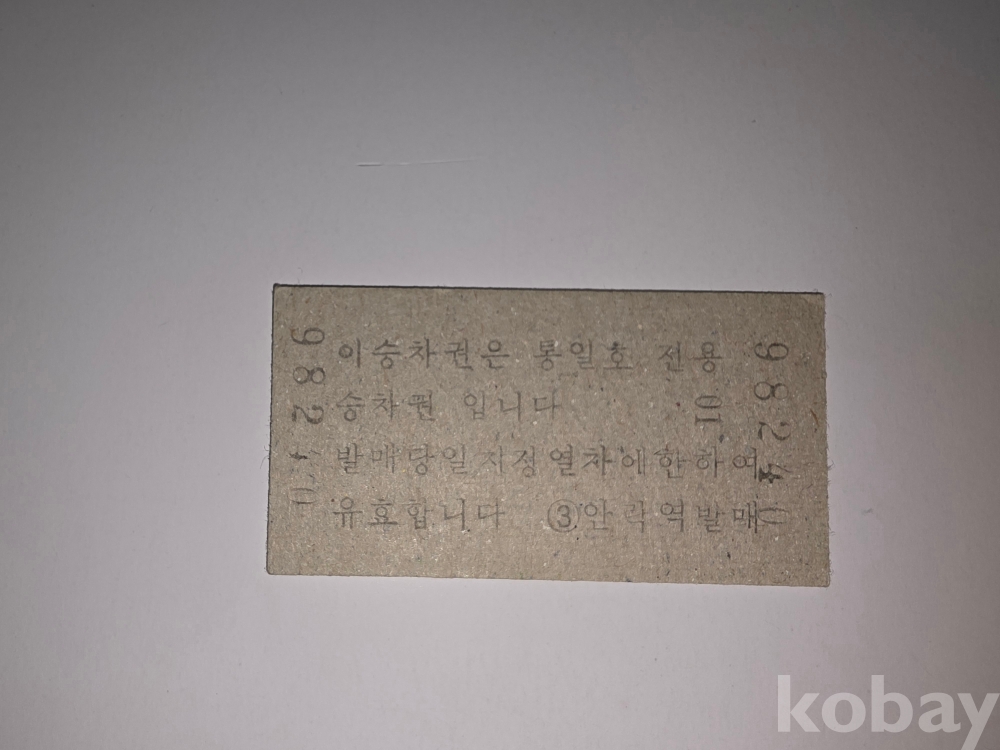 이승차권은 통일호 전용
승차권 입니다
01
발매당일지정열차에한하여
유효합니다 ③안락역발매
98240
98240
kobay